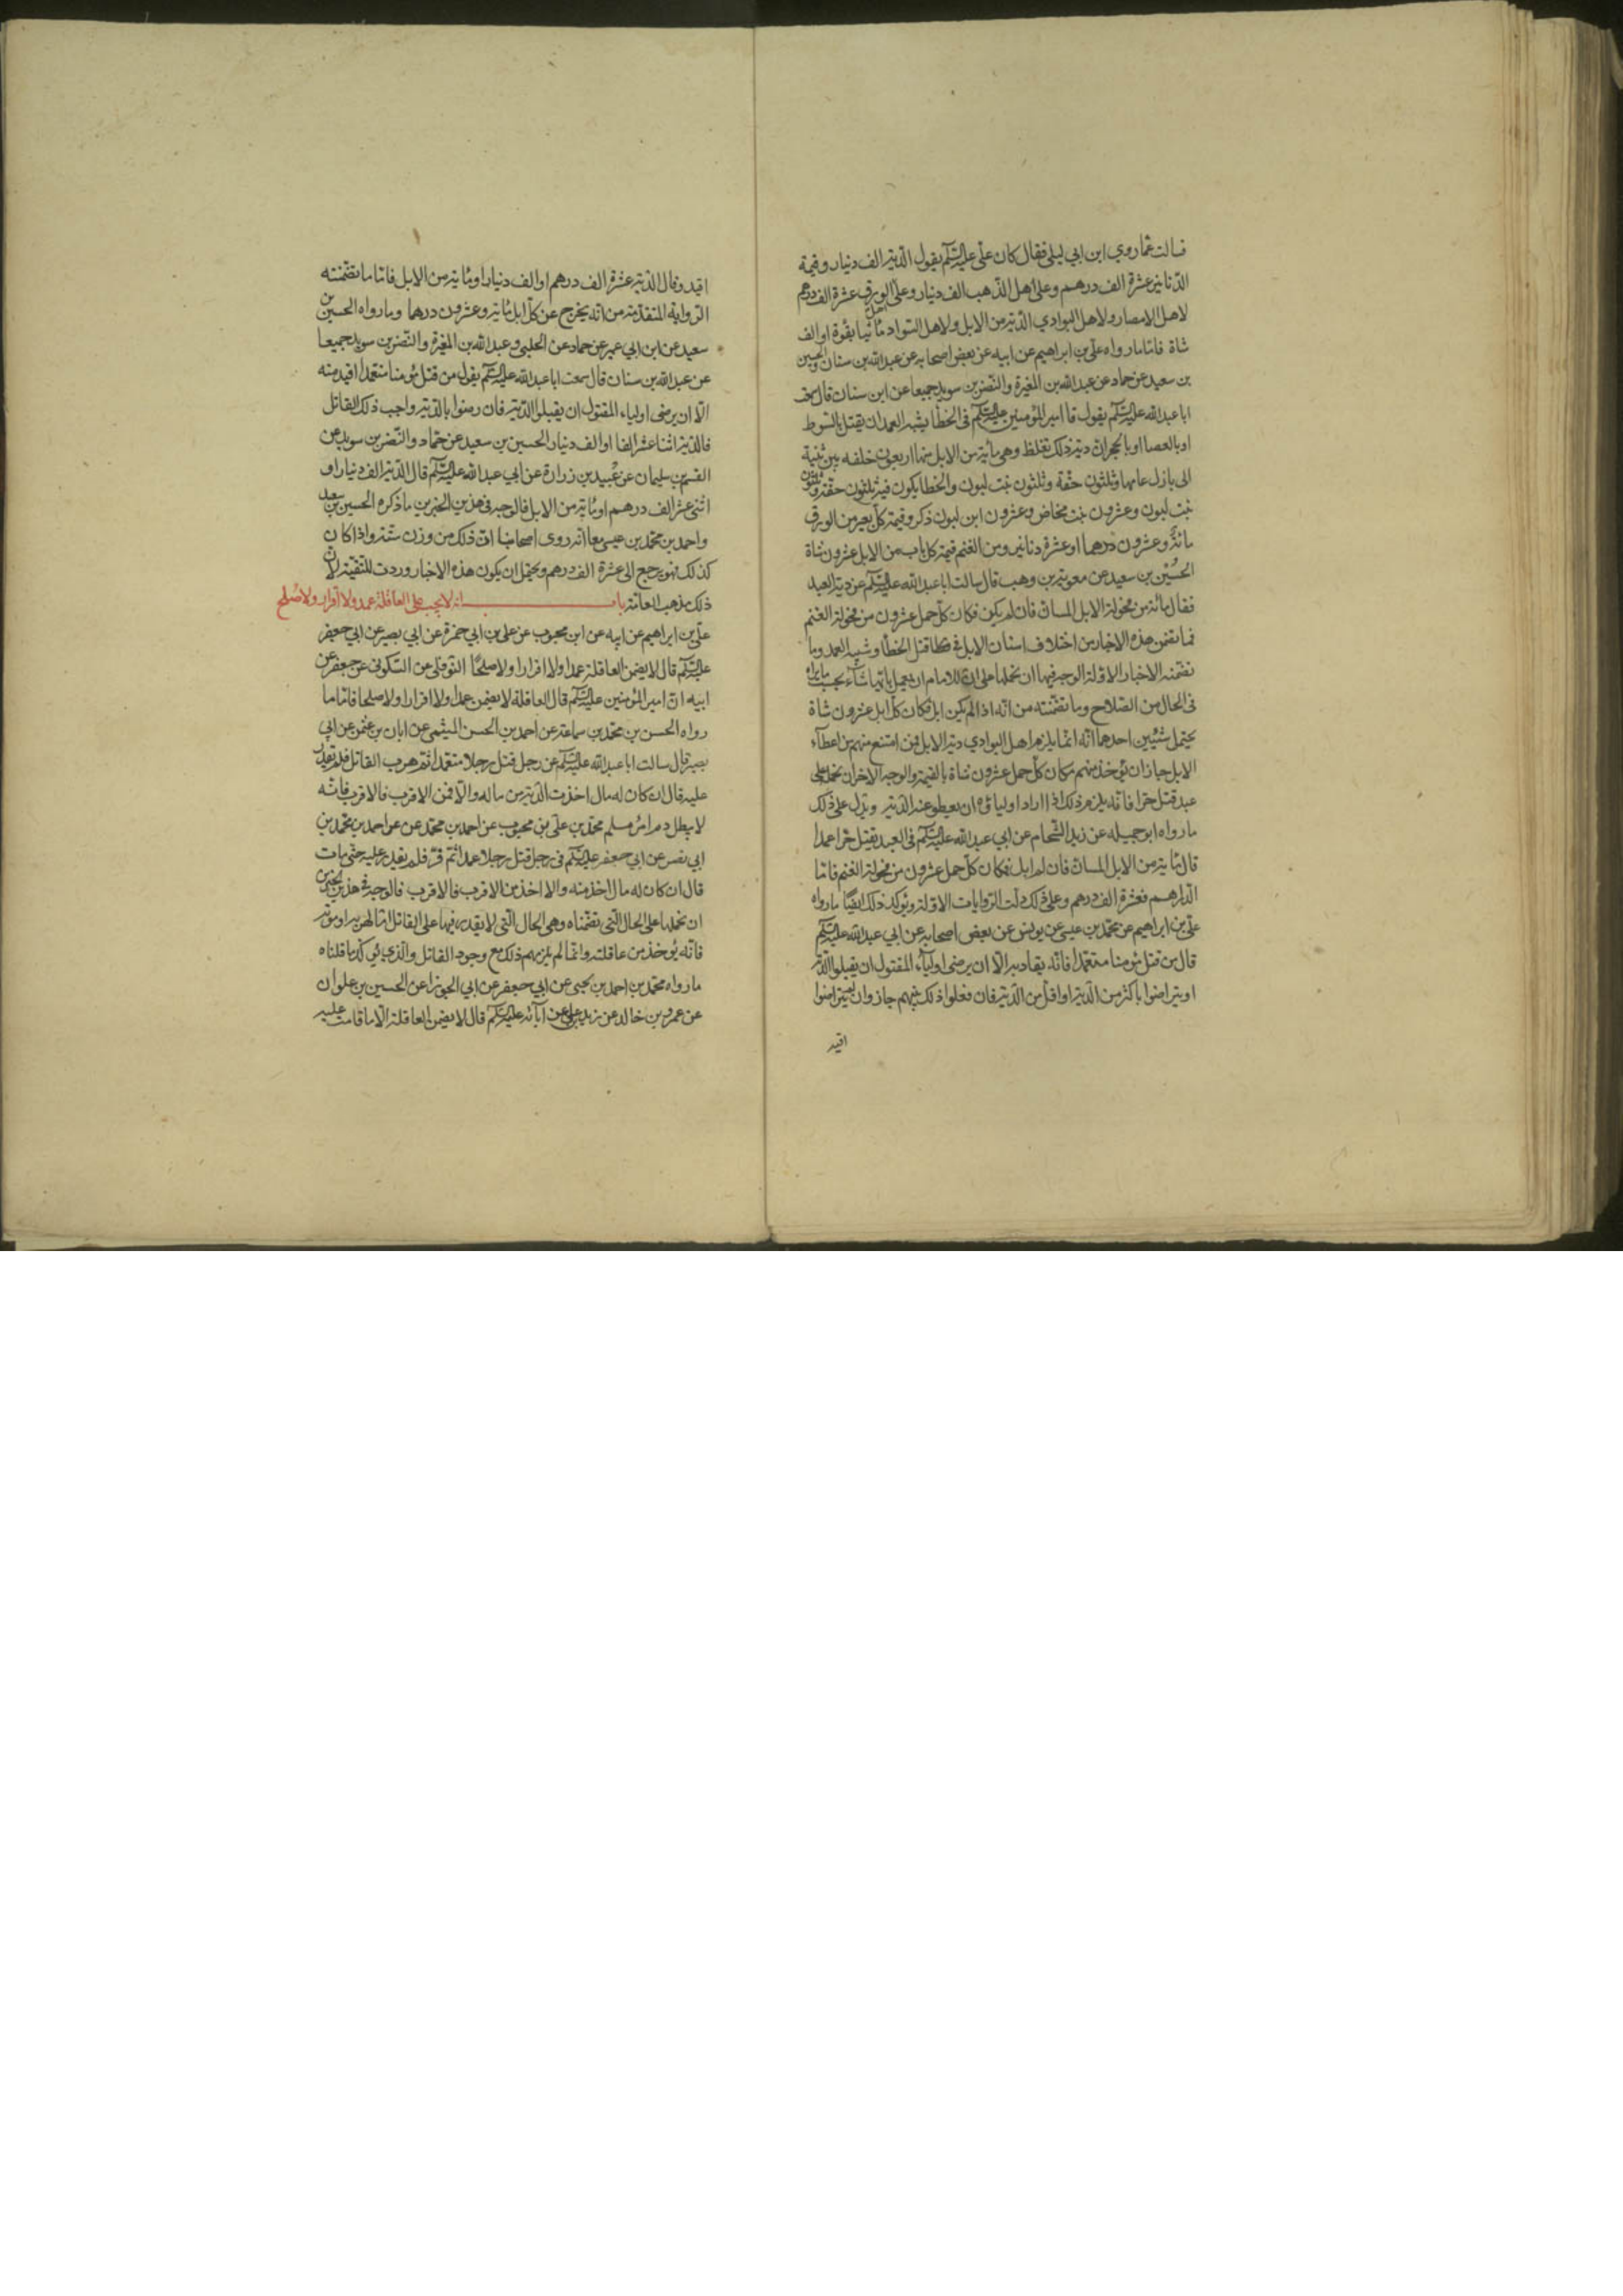 فسالت عما روي ابن ابي ليلى فقال كان علي عليه السلم يقول الدية الف دينار وقيمة
الدنانير عشرة الف درهم وعلى اهل الذهب الف دينار وعلى اهل الورق عشرة الف درهم
لاهل الامصار ولاهل البوادي الدية من الابل ولاهل السواد مأتيا بقرة او الف
شاة فاما ما رواه علي بن ابراهيم عن ابيه عن بعض اصحابه عن عبد الله بن سنان والحسين
بن سعيد عن حماد عن عبد الله بن المغيرة والنضر بن سويد جميعا عن ابن سنان قال سمعت
ابا عبد الله عليه السلم يقول قال امير المؤمنين عليه السلم في الخطأ يشبه العمد ان يقتل بالسوط
او بالعصا او بالحجر ان دية ذلك تغلظ وهي مأية من الابل منها اربعون خلفه بين ثنية
الى بازل عامها وثلثون حقة وثلثون بنت لبون والخطا يكون فيه ثلثون حقة وثلثون
بنت لبون وعشرون بنت مخاض وعشرون ابن لبون ذكر وقيمة كل بعير من الورق
مائة وعشرون درهما او عشرة دنانير ومن الغنم قيمة كل ناب من الابل عشرون شاة
الحسين بن سعيد عن معوية بن وهب قال سالت ابا عبد الله عليه السلم عن دية العمد
فقال مائة من فحولة الابل المسان فان لم يكن فكان كل جمل عشرون من فحولة الغنم
فما تضمن هذه الاخبار من اختلاف اسنان الابل في قتل الخطأ وشبه العمد وما
تضمنه الاخبار الاولة الوجه فيها ان نحملها على ان للامام ان يعمل بايها شاء بحسب ما يراه
في الحال من الصلاح وما تضمنته من انه اذا لم يكن ابل فكان كل ابل عشرون شاة
يحتمل شيئين احدهما انه انما يلزم اهل البوادي دية الابل فمن امتنع منهم من اعطاء
الابل جاز ان يؤخذ منهم مكان كل جمل عشرون شاة بالقيمة والوجه الاخر ان نحمله على
عبد قتل حرا فانه يلزم ذلك اذا اراد اولياؤه ان يعطوا عنه الدية ويدل على ذلك
ما رواه ابو جميله عن زيد الشحام عن ابي عبد الله عليه السلم في العبد يقتل حرا عمدا
قال مأية من الابل المسان فان لم ابل فكان كل جمل عشرون من فحولة الغنم فاما
الدراهم فعشرة الف درهم وعلى ذلك دلت الروايات الاولة ويؤكد ذلك ايضا ما رواه
علي بن ابراهيم عن محمد بن عيسى عن يونس عن بعض اصحابه عن ابي عبد الله عليه السلم
قال من قتل مؤمنا متعمدا فانه يقاد به الا ان يرضى اولياء المقتول ان يقبلوا الدية
او يتراضوا باكثر من الدية او اقل من الدية فان فعلوا ذلك بينهم جاز وان لم يتراضوا
اقيد
اقيد وقال الدية عشرة الف درهم او الف دينار او مأية من الابل فاما ما تضمنته
الرواية المتقدمة من انه يخرج عن كل ابل مأية وعشرون درهما وما رواه الحسين بن
سعيد عن ابن ابي عمير عن حماد عن الحلبي وعبد الله بن المغيرة والنضر بن سويد جميعا
عن عبد الله بن سنان قال سمعت ابا عبد الله عليه السلم يقول من قتل مؤمنا متعمدا اقيد منه
الا ان يرضى اولياء المقتول ان يقبلوا الدية فان رضوا بالدية واحب ذلك القاتل
فالدية اثنا عشر الفا او الف دينار الحسين بن سعيد عن حماد والنضر بن سويد عن
القسم بن سليمان عن عبيد بن زرارة عن ابي عبد الله عليه السلم قال الدية الف دينار او
اثني عشر الف درهم او مأية من الابل فالوجه في هذين الخبرين ما ذكره الحسين بن سعيد
واحمد بن محمد بن عيسى معا انه روى اصحابنا ان ذلك من وزن ستة واذا كان
كذلك فهو يرجع الى عشرة الف درهم ويحتمل ان يكون هذه الاخبار وردت للتقية لان
ذلك مذهب العامة باب انه لا يجب على العاقلة عمد ولا اقرار ولا صلح
علي بن ابراهيم عن ابيه عن ابن محبوب عن علي بن ابي حمزة عن ابي بصير عن ابي جعفر
عليه السلم قال لا يضمن العاقلة عمدا ولا اقرارا ولا صلحا النوفلي عن السكوني عن جعفر عن
ابيه ان امير المؤمنين عليه السلم قال العاقلة لا يضمن عمدا ولا اقرارا ولا صلحا فاما ما
رواه الحسن بن محمد بن سماعة عن احمد بن الحسن الميثمي عن ابان بن عثمن عن ابي
بصير قال سالت ابا عبد الله عليه السلم عن رجل قتل رجلا متعمدا ثم هرب القاتل فلم يقدر
عليه قال ان كان له مال اخذت الدية من ماله والا فمن الاقرب فالاقرب فانه
لا يبطل دم امرئ مسلم محمد بن علي بن محبوب عن احمد بن محمد عن عن احمد بن محمد بن
ابي نصر عن ابي جعفر عليه السلم في رجل قتل رجلا عمدا ثم فر فلم يقدر عليه حتى مات
قال ان كان له مال اخذ منه والا اخذ من الاقرب فالاقرب فالوجه في هذين الخبرين
ان نحملها على الحال التي تضمناه وهي الحال التي لا يقدر فيها على القاتل اما لهربه او موته
فانه يؤخذ من عاقلته وانما لم يلزمهم ذلك مع وجود القاتل والذي يؤكد ما قلناه
ما رواه محمد بن احمد بن يحيى عن ابي جعفر عن ابي الجوزا عن الحسين بن علوان
عن عمرو بن خالد عن زيد بن علي عن آبائه عليه السلم قال لا يضمن العاقلة الا ما قامت عليه